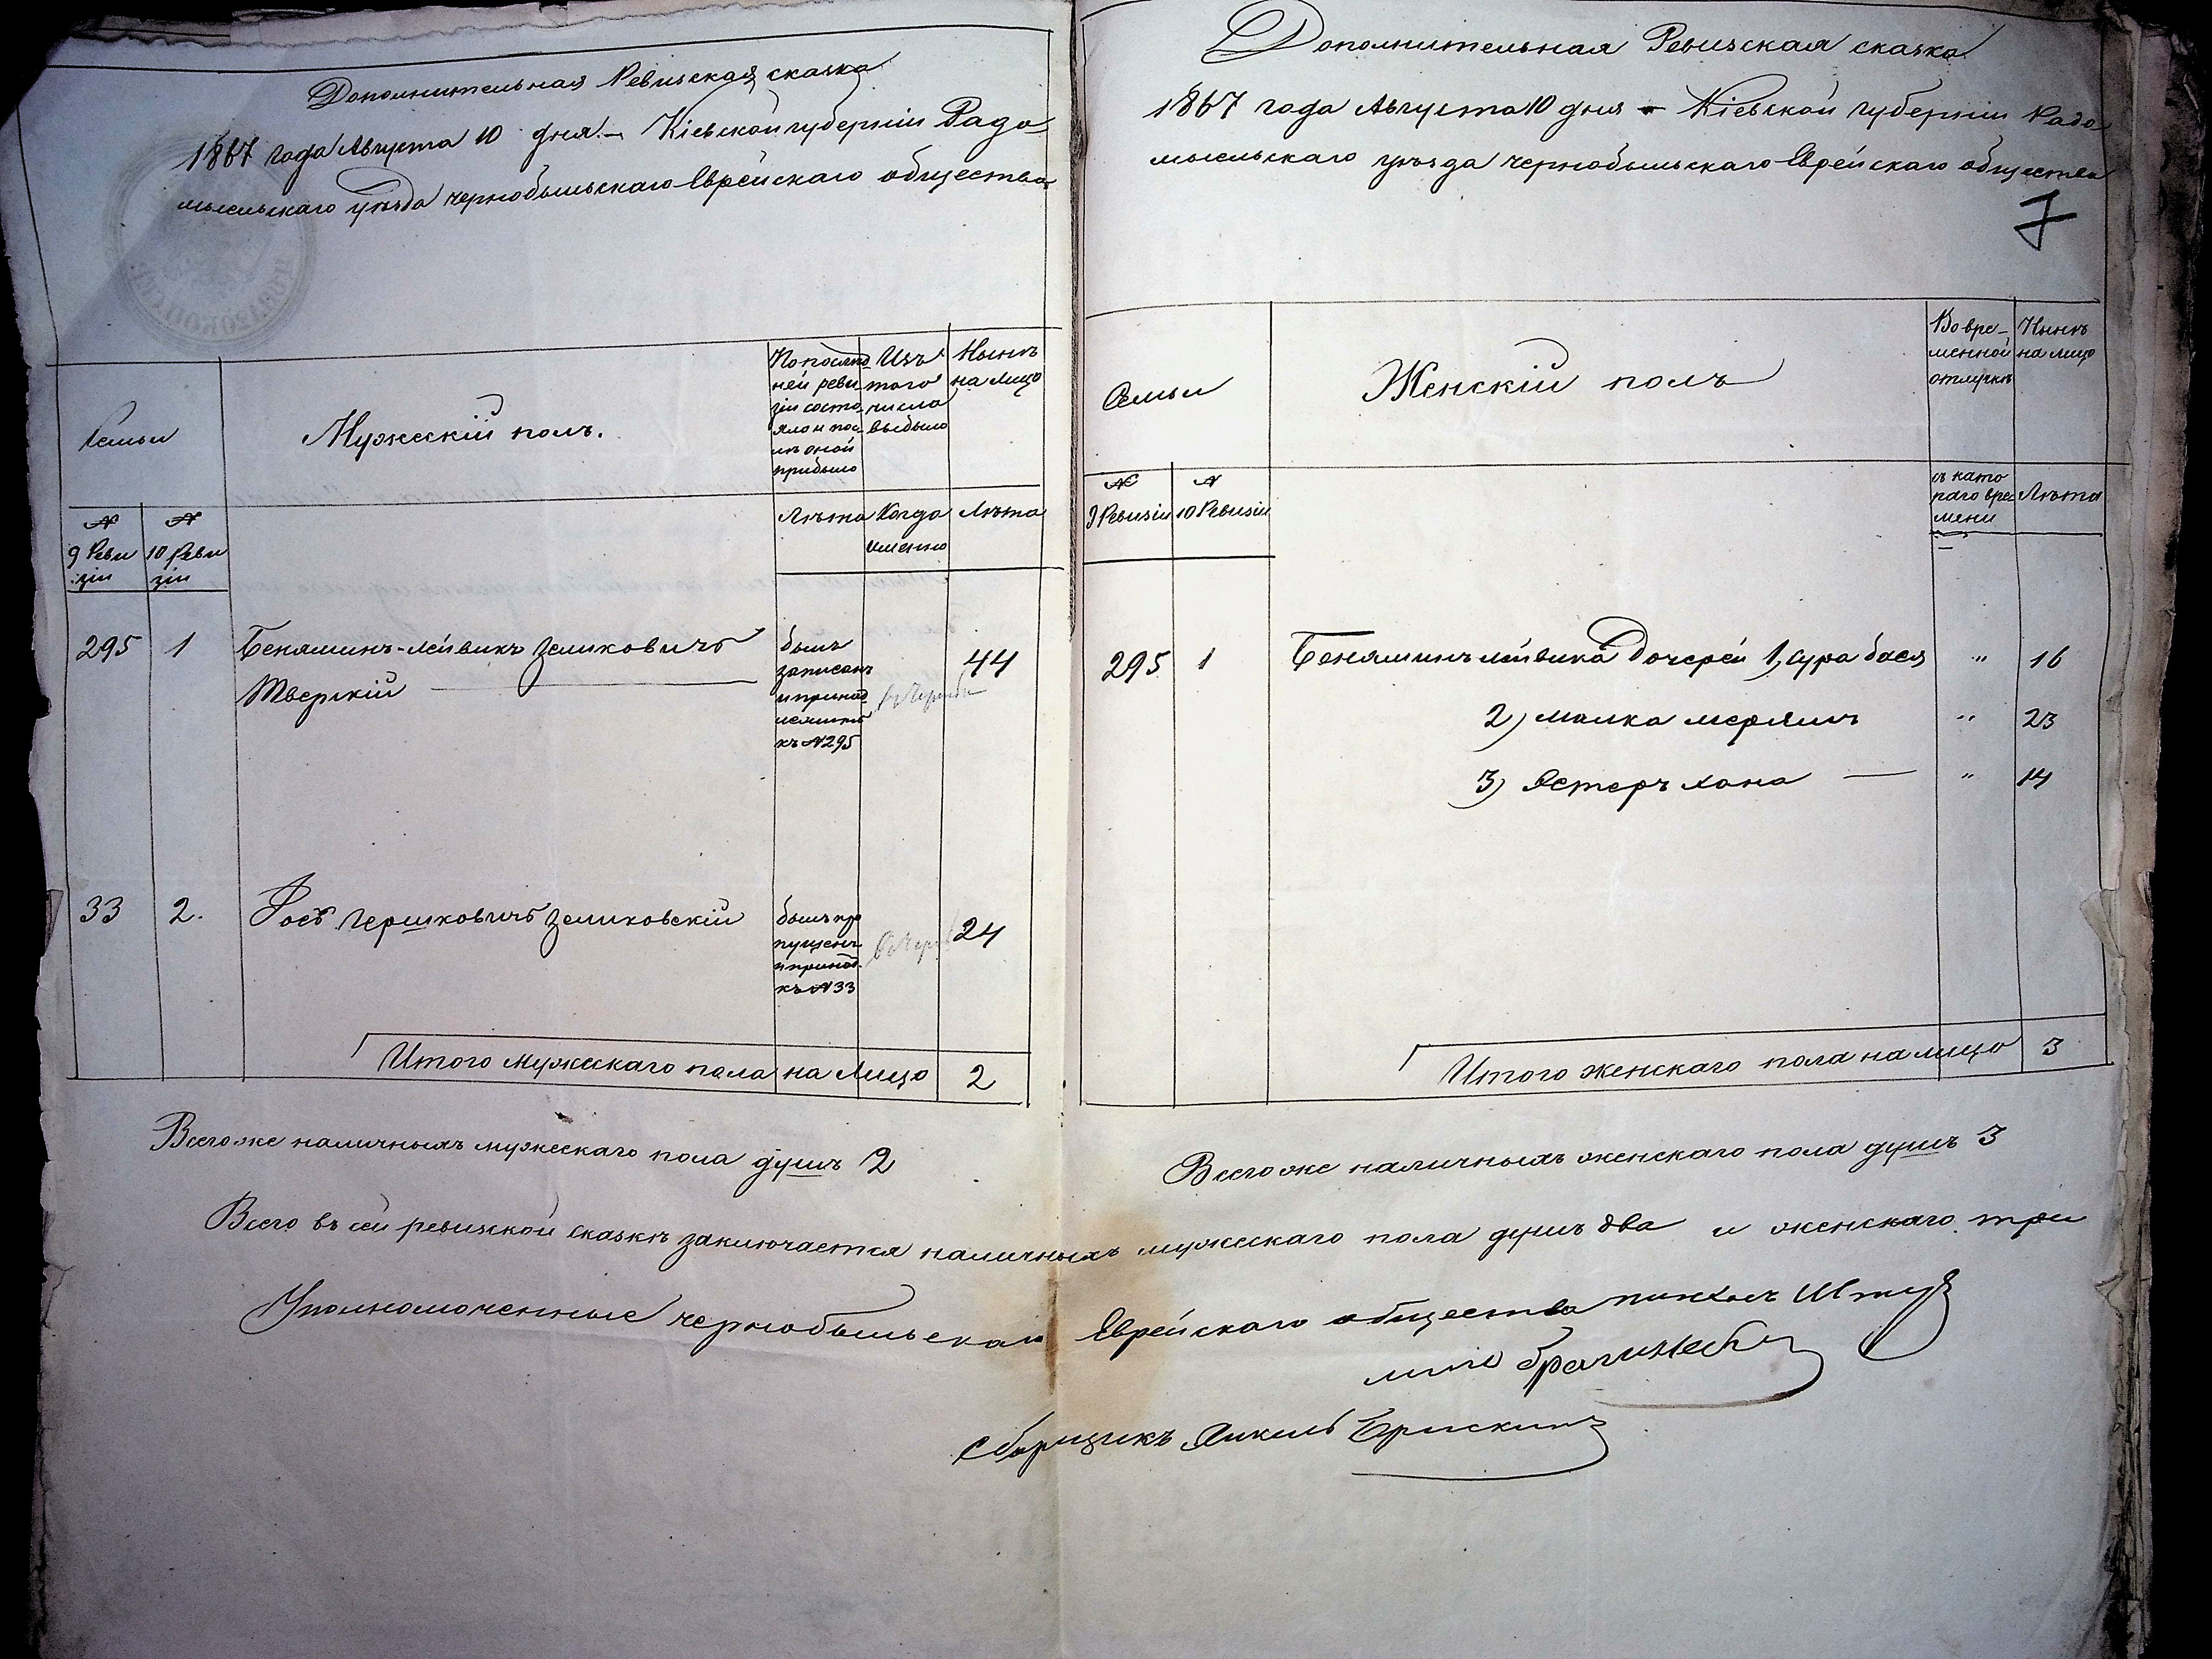 Дополнительная Ревизская сказка
1867 года Августа 10 дня. – Кіевской губерніи Радо
мысльскаго уѣзда Чернобыльскаго Еврейскаго общества
Семьи
Мужескій полъ.
По послѣд
ней реви
зіи состо
яло и пос
лѣ оной
прибыло
Изъ
того
числа
выбыло
Нынѣ
на лицо
№
9 Реви
зіи
№
10 Реви
зіи
Лѣта
Когда
именно
Лѣта
295 1 Беняминъ-Лейвикъ Зеликовичъ 44
Тверскій
былъ
записанъ
и принад
лежитъ
къ №295
33 2. Гершковичъ Зеликовскій 24
былъ про
пущенъ
и принад.
къ №33
Итого Мужескаго пола на Лицо 2
Всего же наличныхъ мужескаго пола душъ 2
Дополнительная Ревизская сказка
1867 года Августа 10 дня – Кіевской губерніи Радо
мысльскаго уѣзда Чернобыльскаго Еврейскаго общества
7
Семьи
Женскій полъ
Во вре-
менной
отлучкѣ
Нынѣ
на лицо
№
9 Ревизіи
№
10 Ревизіи
съ като
раго вре
мени
Лѣта
295 1 Бенямина Лейвика Дочерей 1, Сура бася " 16
2) малка мерямъ " 23
3) Эстеръ хана — " 14
Итого женскаго пола на лицо 3
Всего же наличныхъ женскаго пола душъ 3
Всего въ сей ревизской сказкѣ заключается наличныхъ мужескаго пола душъ два и женскаго три
Уполномоченные Чернобыльскаго Еврейскаго общества
Сборщикъ Янкель Брискинъ